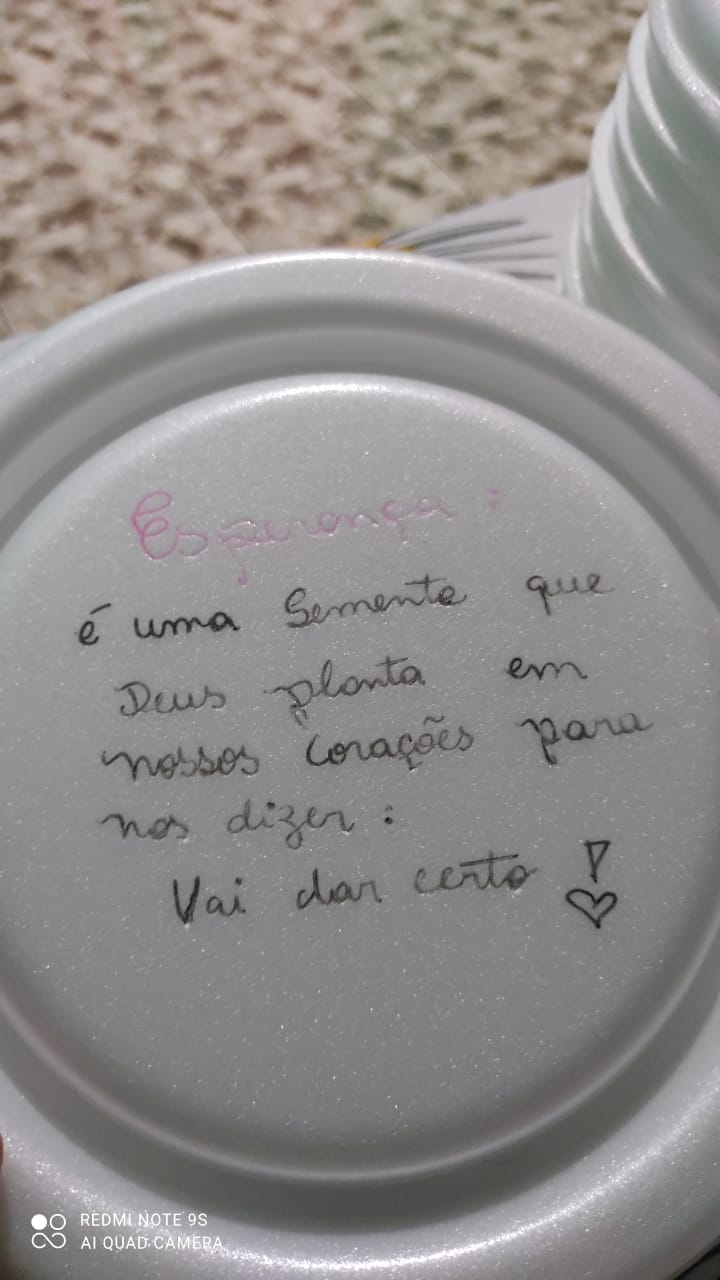 Esperança:
é uma Semente que
Deus planta em
nossos Corações para
nos dizer:
Vai dar certo!
REDMI NOTE 9S
AI QUAD CAMERA